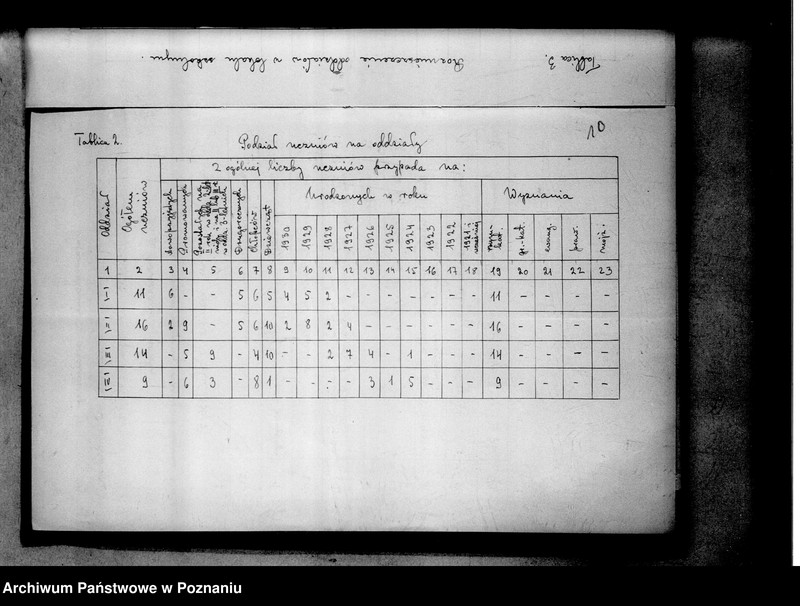 Tablica 3. Rozmieszczenie oddziałów w lokalu szkolnym.
10
Tablica 2. Podział uczniów na oddziały
Oddział | Ogółem uczniów | Z ogólnej liczby uczniów przypada na:
Nowoprzyjętych | Promowanych | Pozostałych na | Drugorocznych | Chłopców | Dziewcząt | Urodzonych w roku | Wyznania
1930 | 1929 | 1928 | 1927 | 1926 | 1925 | 1924 | 1923 | 1922 | 1921 i wcześniej | rzym. kat. | gr.-kat. | ewang. | praw. | mojż.
1 | 2 | 3 | 4 | 5 | 6 | 7 | 8 | 9 | 10 | 11 | 12 | 13 | 14 | 15 | 16 | 17 | 18 | 19 | 20 | 21 | 22 | 23
I | 11 | 6 | - | - | 5 | 6 | 5 | 4 | 5 | 2 | - | - | - | - | - | - | - | 11 | - | - | - | -
II | 16 | 2 | 9 | - | 5 | 6 | 10 | 2 | 8 | 2 | 4 | - | - | - | - | - | - | 16 | - | - | - | -
III | 14 | - | 5 | 9 | - | 4 | 10 | - | - | 2 | 7 | 4 | - | 1 | - | - | - | 14 | - | - | - | -
IV | 9 | - | 6 | 3 | - | 8 | 1 | - | - | - | - | 3 | 1 | 5 | - | - | - | 9 | - | - | - | -
Archiwum Państwowe w Poznaniu